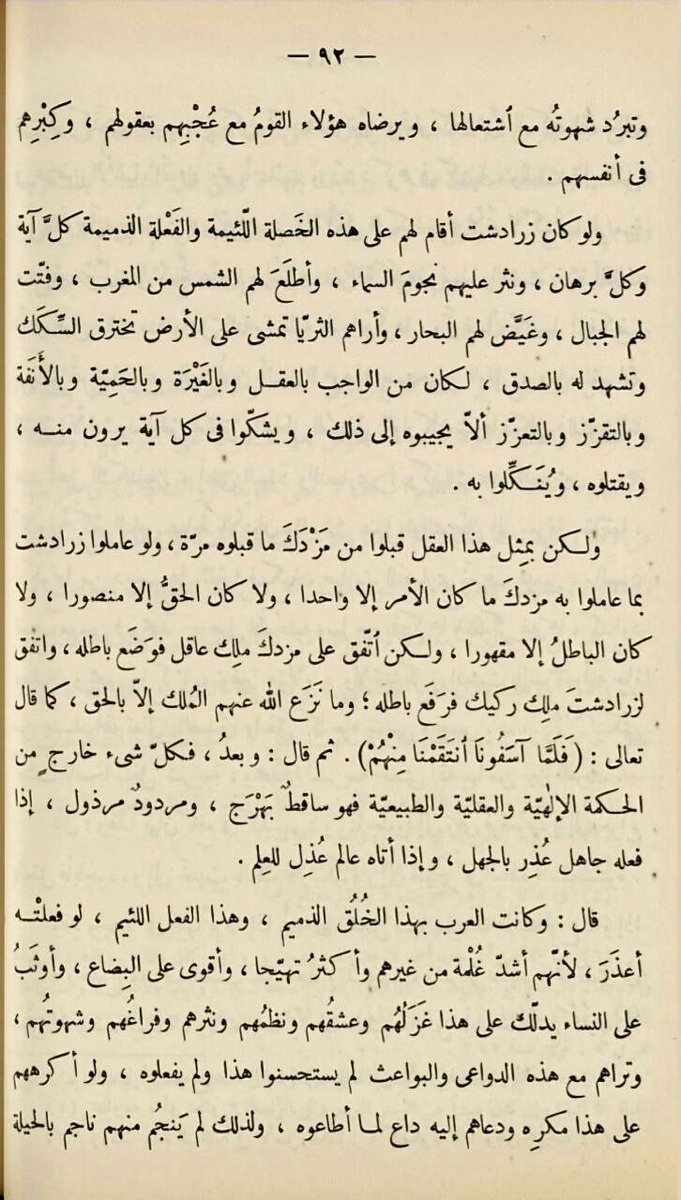 — ٩٢ —
وتبرُد شهوتُه مع ٱشتعالها ، ويرضاه هؤلاء القومُ مع عُجْبِهِم بعقولهم ، وكِبْرِهِم
فى أنفسهم .
ولو كان زرادشت أقام لهم على هذه الخَصلة اللّئيمة والفَعْلة الذميمة كلَّ آية
وكلَّ برهان ، ونثر عليهم نجومَ السماء ، وأطلَعَ لهم الشمس من المغرب ، وفتّت
لهم الجبال ، وغَيَّض لهم البحار ، وأراهم الثريّا تمشى على الأرض تخترق السِّكَك
وتشهد له بالصدق ، لكان من الواجب بالعقـل وبالغَيْرَة وبالحَمِيّة وبالأَنَفة
وبالتقزّز وبالتعزّز ألاّ يجيبوه إلى ذلك ، ويشكّوا فى كل آية يرون منـه ،
ويقتلوه ، ويُنَـكِّلوا به .
ولٰـكن بمِثل هذا العقل قبلوا من مَزْدَكَ ما قبلوه مرّة ، ولو عاملوا زرادشت
بما عاملوا به مزدكَ ما كان الأمر إلا واحدا ، ولا كان الحقُّ إلا منصورا ، ولا
كان الباطلُ إلا مقهورا ، ولـكن ٱتّفق على مزدكَ ملِك عاقل فوَضَع باطله ، واتفق
لزرادشتَ ملِك ركيك فرَفَع باطله ؛ وما نَزَع اللّه عنهم المُلك إلاّ بالحق ، كما قال
تعالى : ( فَلَمَّا آسَفُونَا ٱنتَقَمْنَا مِنْهُمْ ) . ثم قال : وبعدُ ، فكلّ شىء خارجٍ من
الحـكمة الإلٰهيّة والعقليّة والطبيعيّة فهو ساقطٌ بَهْرَج ، ومردودٌ مرذول ، إذا
فعله جاهل عُذِر بالجهل ، وإذا أتاه عالم عُذِل للعِلم .
قال : وكانت العرب بهذا الخُلُق الذميم ، وهذا الفعل اللئيم ، لو فعلتْـه
أعذَرَ ، لأنّهم أشدّ غُلْمة من غيرهم وأكثرُ تهيّجا ، وأقوى على البِضاع ، وأوثَبُ
على النساء يدلّك على هذا غَزَلُهم وعشقُهم ونظمُهم ونثرهم وفراغُهم وشهوتُهم ،
وتراهم مع هذه الدواعى والبواعث لم يستحسنوا هذا ولم يفعلوه ، ولو أكرههم
على هذا مكرِه ودعاهم إليه داع لمـا أطاعوه ، ولذلك لم يَنجُم منهم ناجم بالحيلة